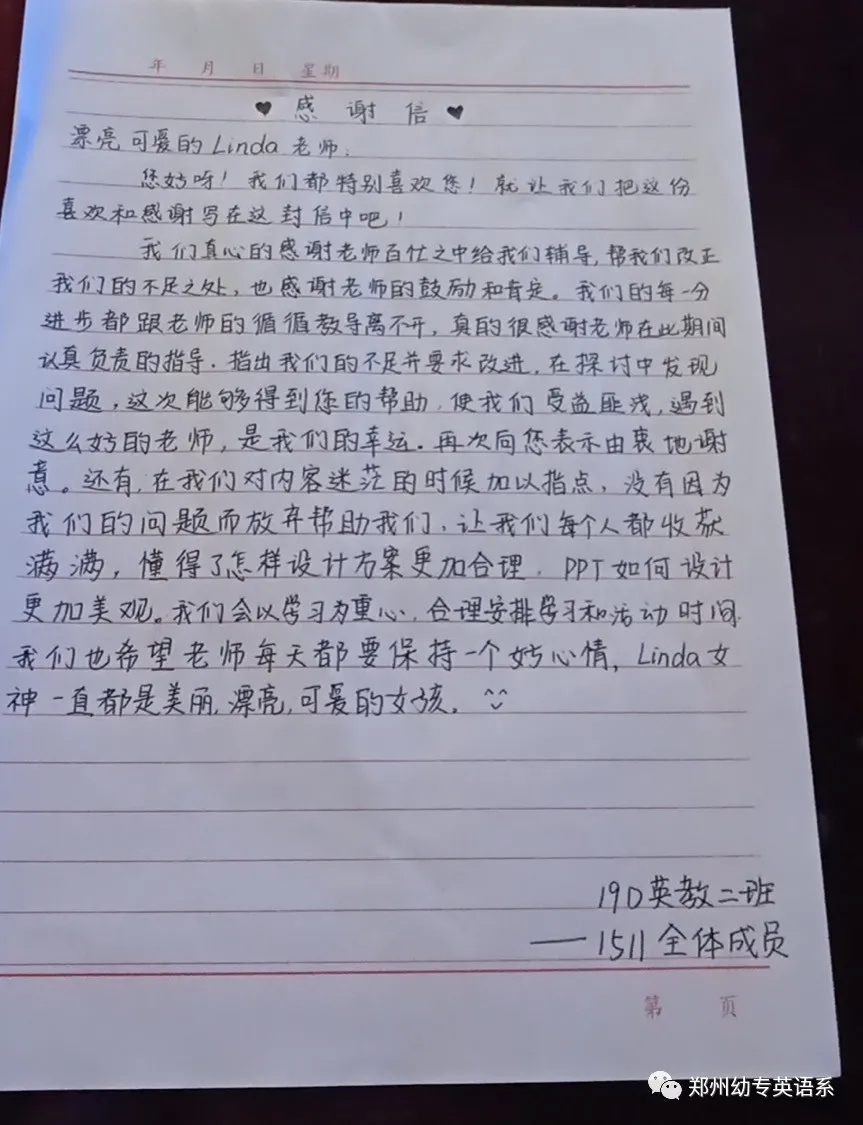 年 月 日 星期
♥ 感谢信 ♥
漂亮可爱的Linda老师:
您好呀!我们都特别喜欢您!就让我们把这份
喜欢和感谢写在这封信中吧!
我们真心的感谢老师百忙之中给我们辅导,帮我们改正
我们的不足之处,也感谢老师的鼓励和肯定。我们的每一分
进步都跟老师的循循教导离不开,真的很感谢老师在此期间
认真负责的指导.指出我们的不足并要求改进,在探讨中发现
问题,这次能够得到您的帮助,使我们受益匪浅,遇到
这么好的老师,是我们的幸运.再次向您表示由衷地谢
意。还有,在我们对内容迷茫的时候加以指点,没有因为
我们的问题而放弃帮助我们,让我们每个人都收获
满满,懂得了怎样设计方案更加合理.PPT如何设计
更加美观。我们会以学习为重心,合理安排学习和活动时间.
我们也希望老师每天都要保持一个好心情,Linda女
神一直都是美丽,漂亮,可爱的女孩.
19D英教二班
——1511全体成员
第 页
郑州幼专英语系